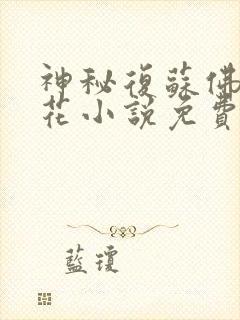 神秘復蘇佛
花小說免費
藍瓊